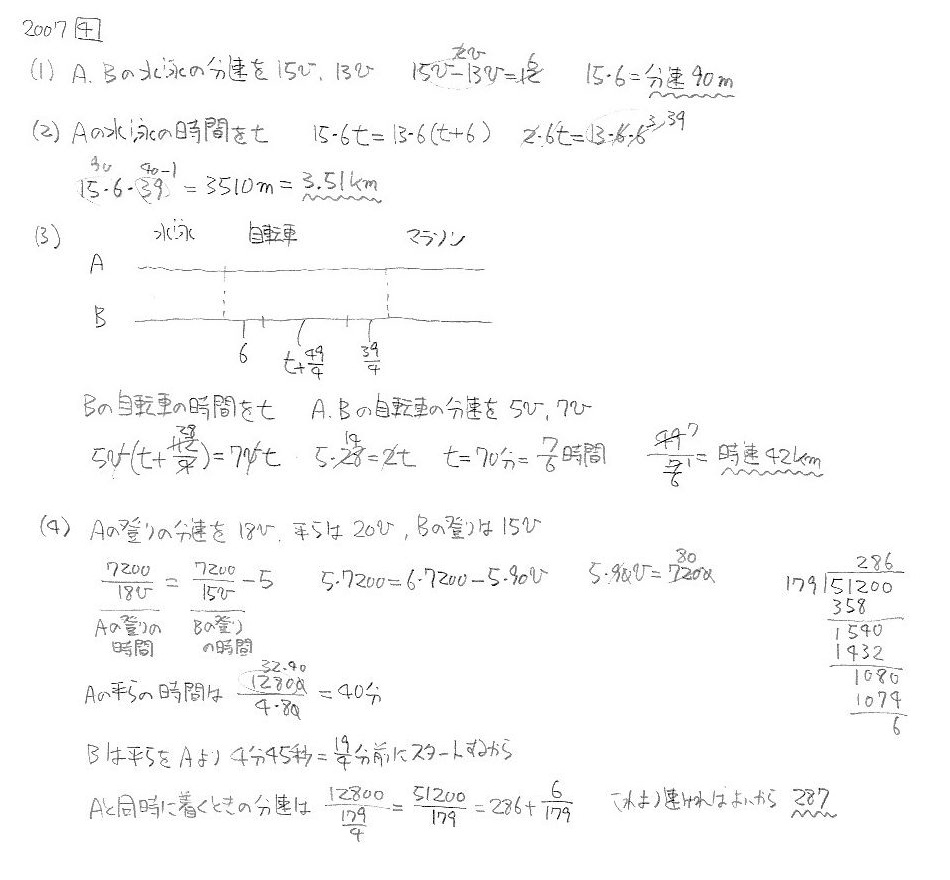 2007 4
(1) A.Bの水泳の分速を15v, 13v 15v-13v=12 15・6=分速90m
(2) Aの水泳の時間をt 15・6t=13・6(t+6) 2・6t=13・6・6 3 39
30 40-1
15・6・39=3510m=3.51km
(3) 水泳 自転車 マラソン
A
B
6 t+49/4 39/4
Bの自転車の時間をt A.Bの自転車の分速を5v, 7v
5v(t+ 28)=7vt 5・28=2t 14 t=70分=7/6時間 49/(7/6)=時速42km
(4) Aの登りの分速を18v, 平らは20v, Bの登りは15v
7200/18v=7200/15v-5 5・7200=6・7200-5・90v 5・90v=7200 80
Aの登りの時間 Bの登りの時間
286
179)51200
358
1540
1432
1080
1074
6
32・40
Aの平らの時間は 12800/4・80=40分
Bは平らをAより4分45秒=19/4分前にスタートするから
Aと同時に着くときの分速は 12800/(179/4)=51200/179=286+6/179 これより速ければよいから 287